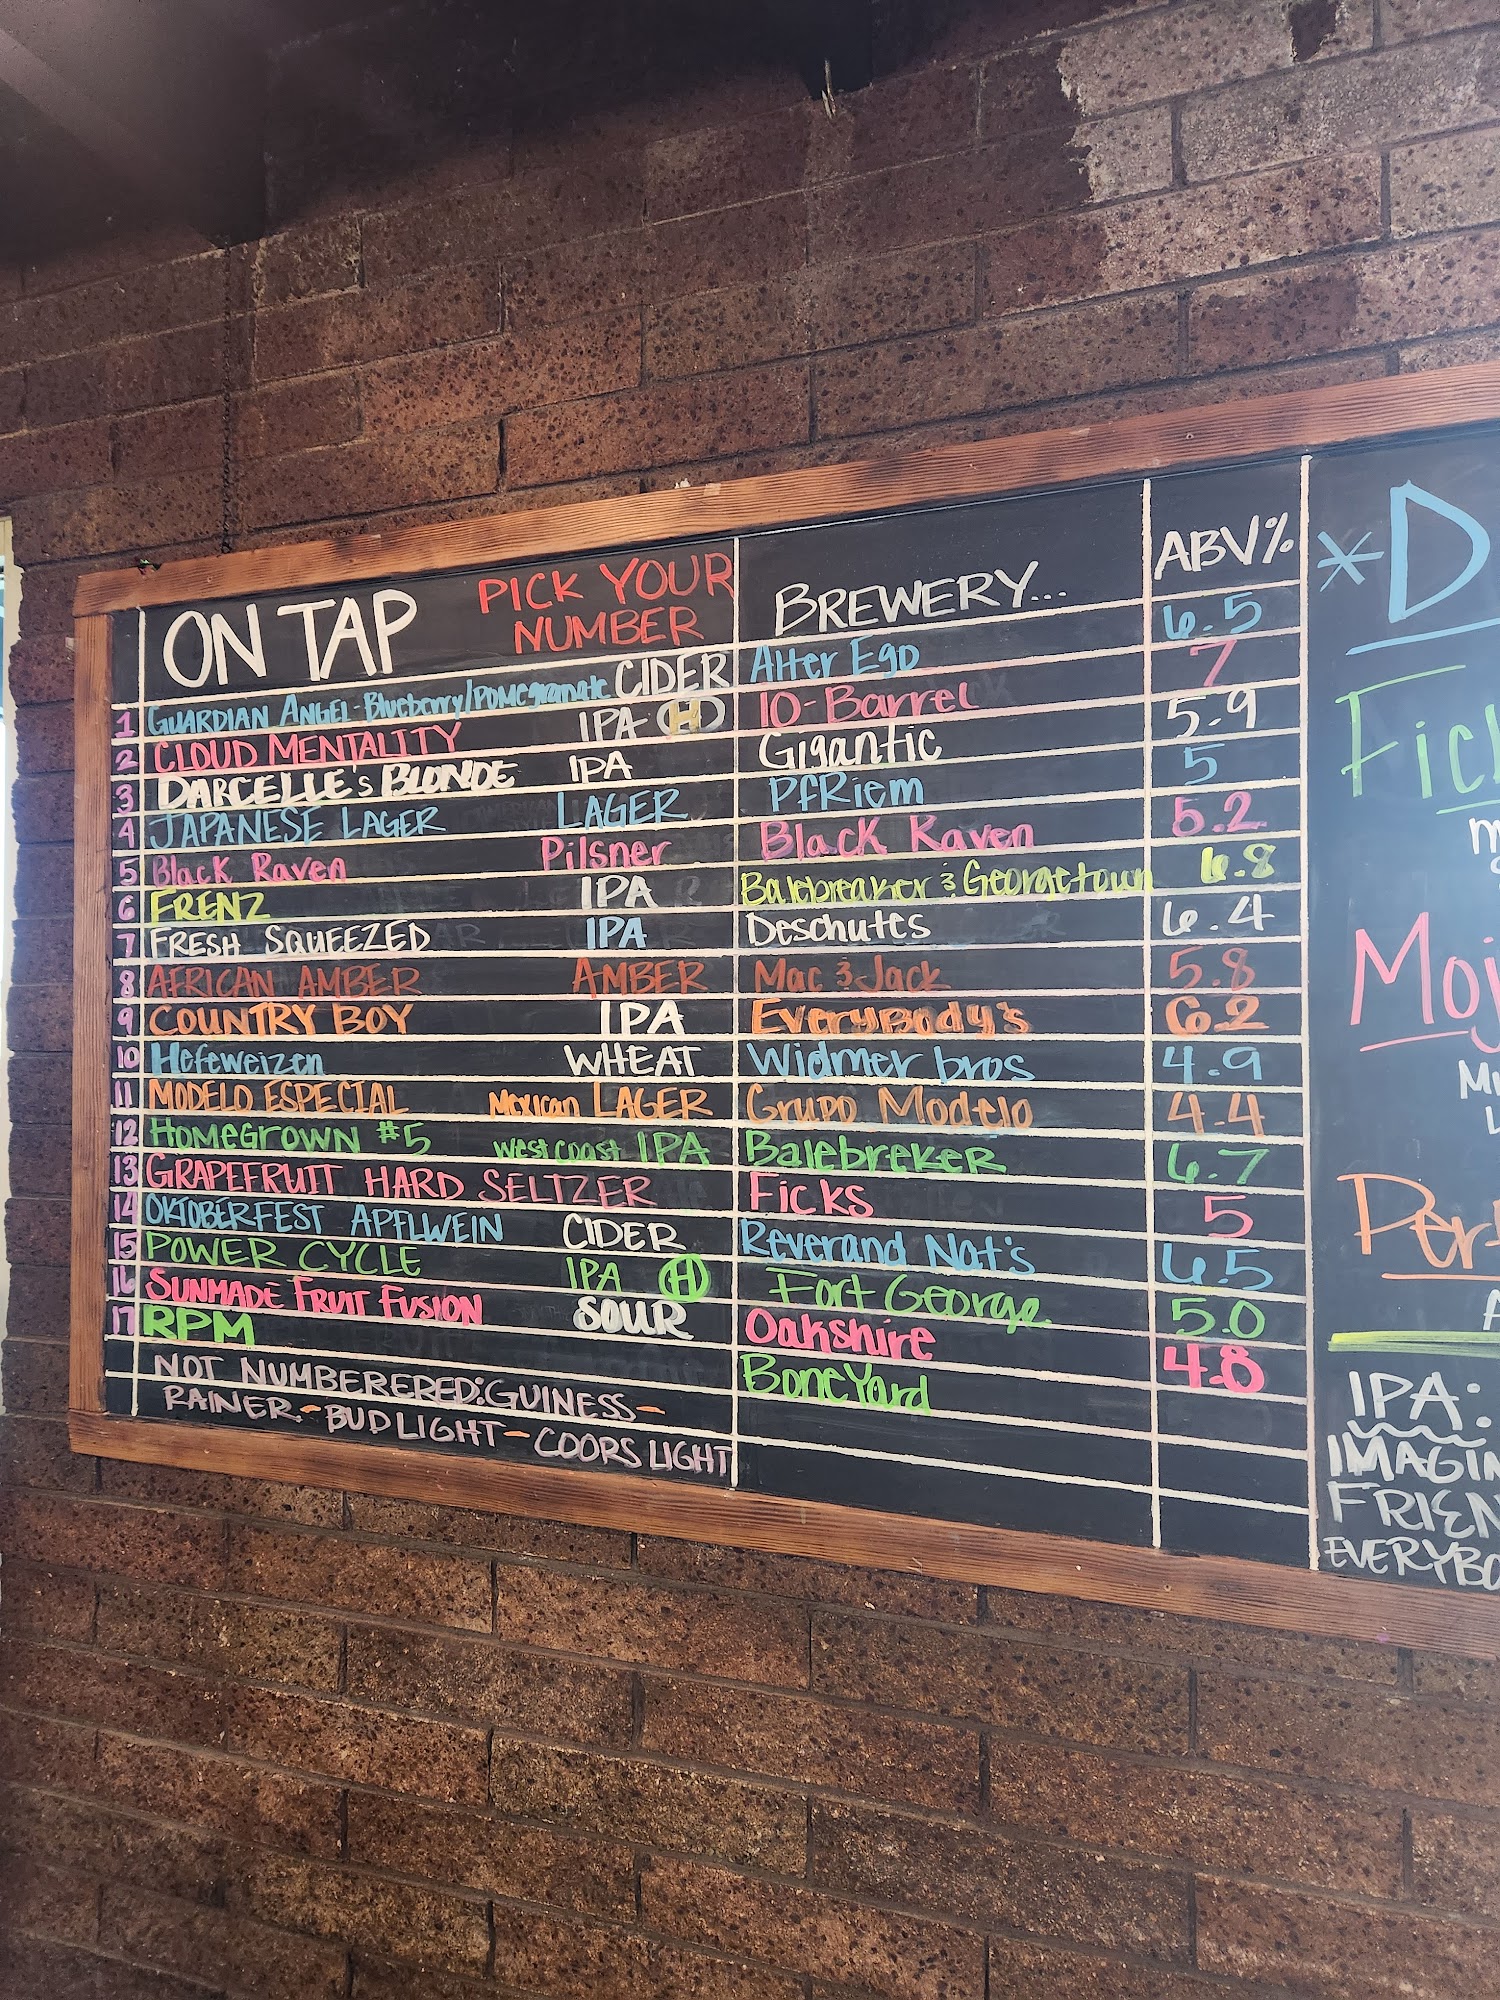 ON TAP PICK YOUR NUMBER BREWERY... ABV%
1 GUARDIAN ANGEL-Blueberry/Pomegranate CIDER Alter Ego 6.5
2 CLOUD MENTALITY IPA H 10-Barrel 7
3 DARCELLE's BLONDE IPA Gigantic 5.9
4 JAPANESE LAGER LAGER PfRiem 5
5 Black Raven Pilsner Black Raven 5.2
6 FRENZ IPA Balebreaker & Georgetown 6.8
7 FRESH SQUEEZED IPA Deschutes 6.4
8 AFRICAN AMBER AMBER Mac & Jack 5.8
9 COUNTRY BOY IPA EveryBody's 6.2
10 Hefeweizen WHEAT Widmer bros 4.9
11 MODELO ESPECIAL Mexican LAGER Grupo Modelo 4.4
12 HOMEGROWN #5 West coast IPA BalebreKER 6.7
13 GRAPEFRUIT HARD SELTZER Ficks 5
14 OKTOBERFEST APFLWEIN CIDER Reverand Nat's 6.5
15 POWER CYCLE IPA H Fort George 5.0
16 SUNMADE FRUIT FUSION SOUR Oakshire 4.8
17 RPM BoneYard
NOT NUMBERERED: GUINESS -
RAINER - BUD LIGHT - COORS LIGHT
*D
Fick
Moj
Per
IPA:
IMAGIN
FRIEN
EVERYBO